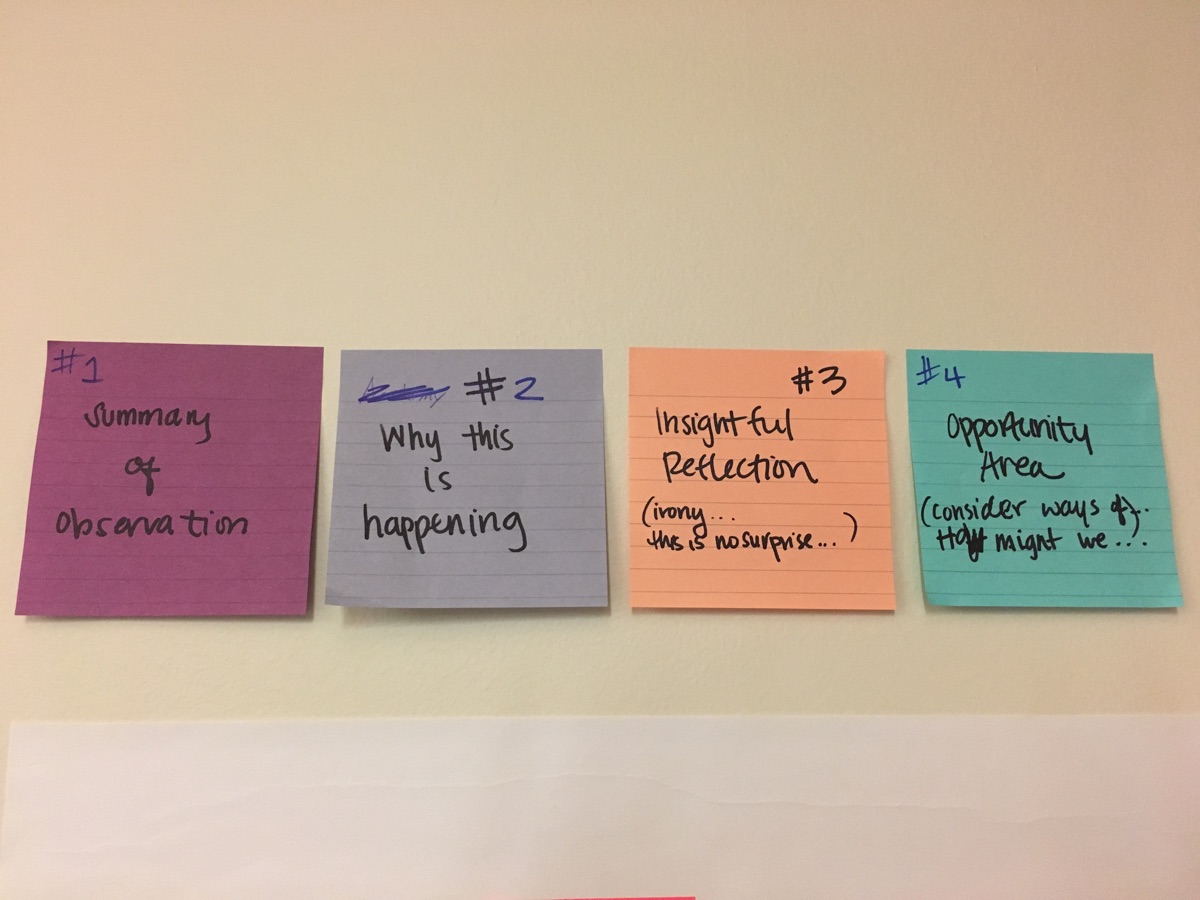 #1
Summary
of
Observation
#2
Why this
is
happening
#3
Insightful
Reflection
(irony...
this is no surprise...)
#4
Opportunity
Area
(consider ways of)..
How might we...